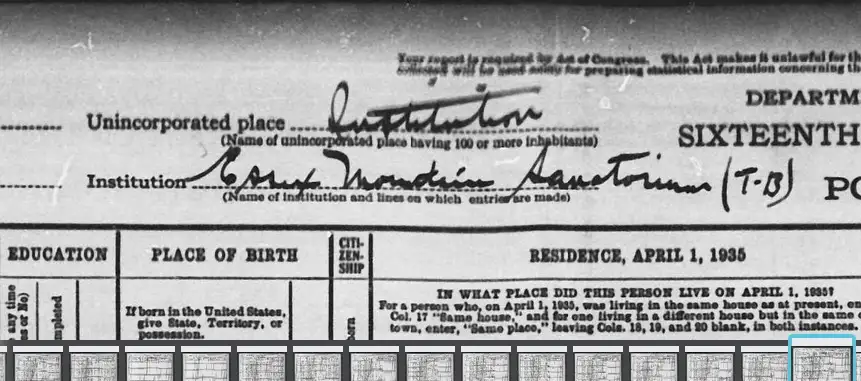 Your report is required by Act of Congress. This Act makes it unlawful for th
for preparing statistical information concerning th
DEPARTM
Unincorporated place Institution
(Name of unincorporated place having 100 or more inhabitants)
SIXTEENTH
Institution Essex Mountain Sanatorium (T-B)
(Name of institution and lines on which entries are made)
PO
EDUCATION
PLACE OF BIRTH
CITI-
ZEN-
SHIP
RESIDENCE, APRIL 1, 1935
IN WHAT PLACE DID THIS PERSON LIVE ON APRIL 1, 1935?
For a person who, on April 1, 1935, was living in the same house as at present, en
Col. 17 "Same house," and for one living in a different house but in the same c
town, enter, "Same place," leaving Cols. 18, 19, and 20 blank, in both instances.
If born in the United States,
give State, Territory, or
possession.
any time
or No)